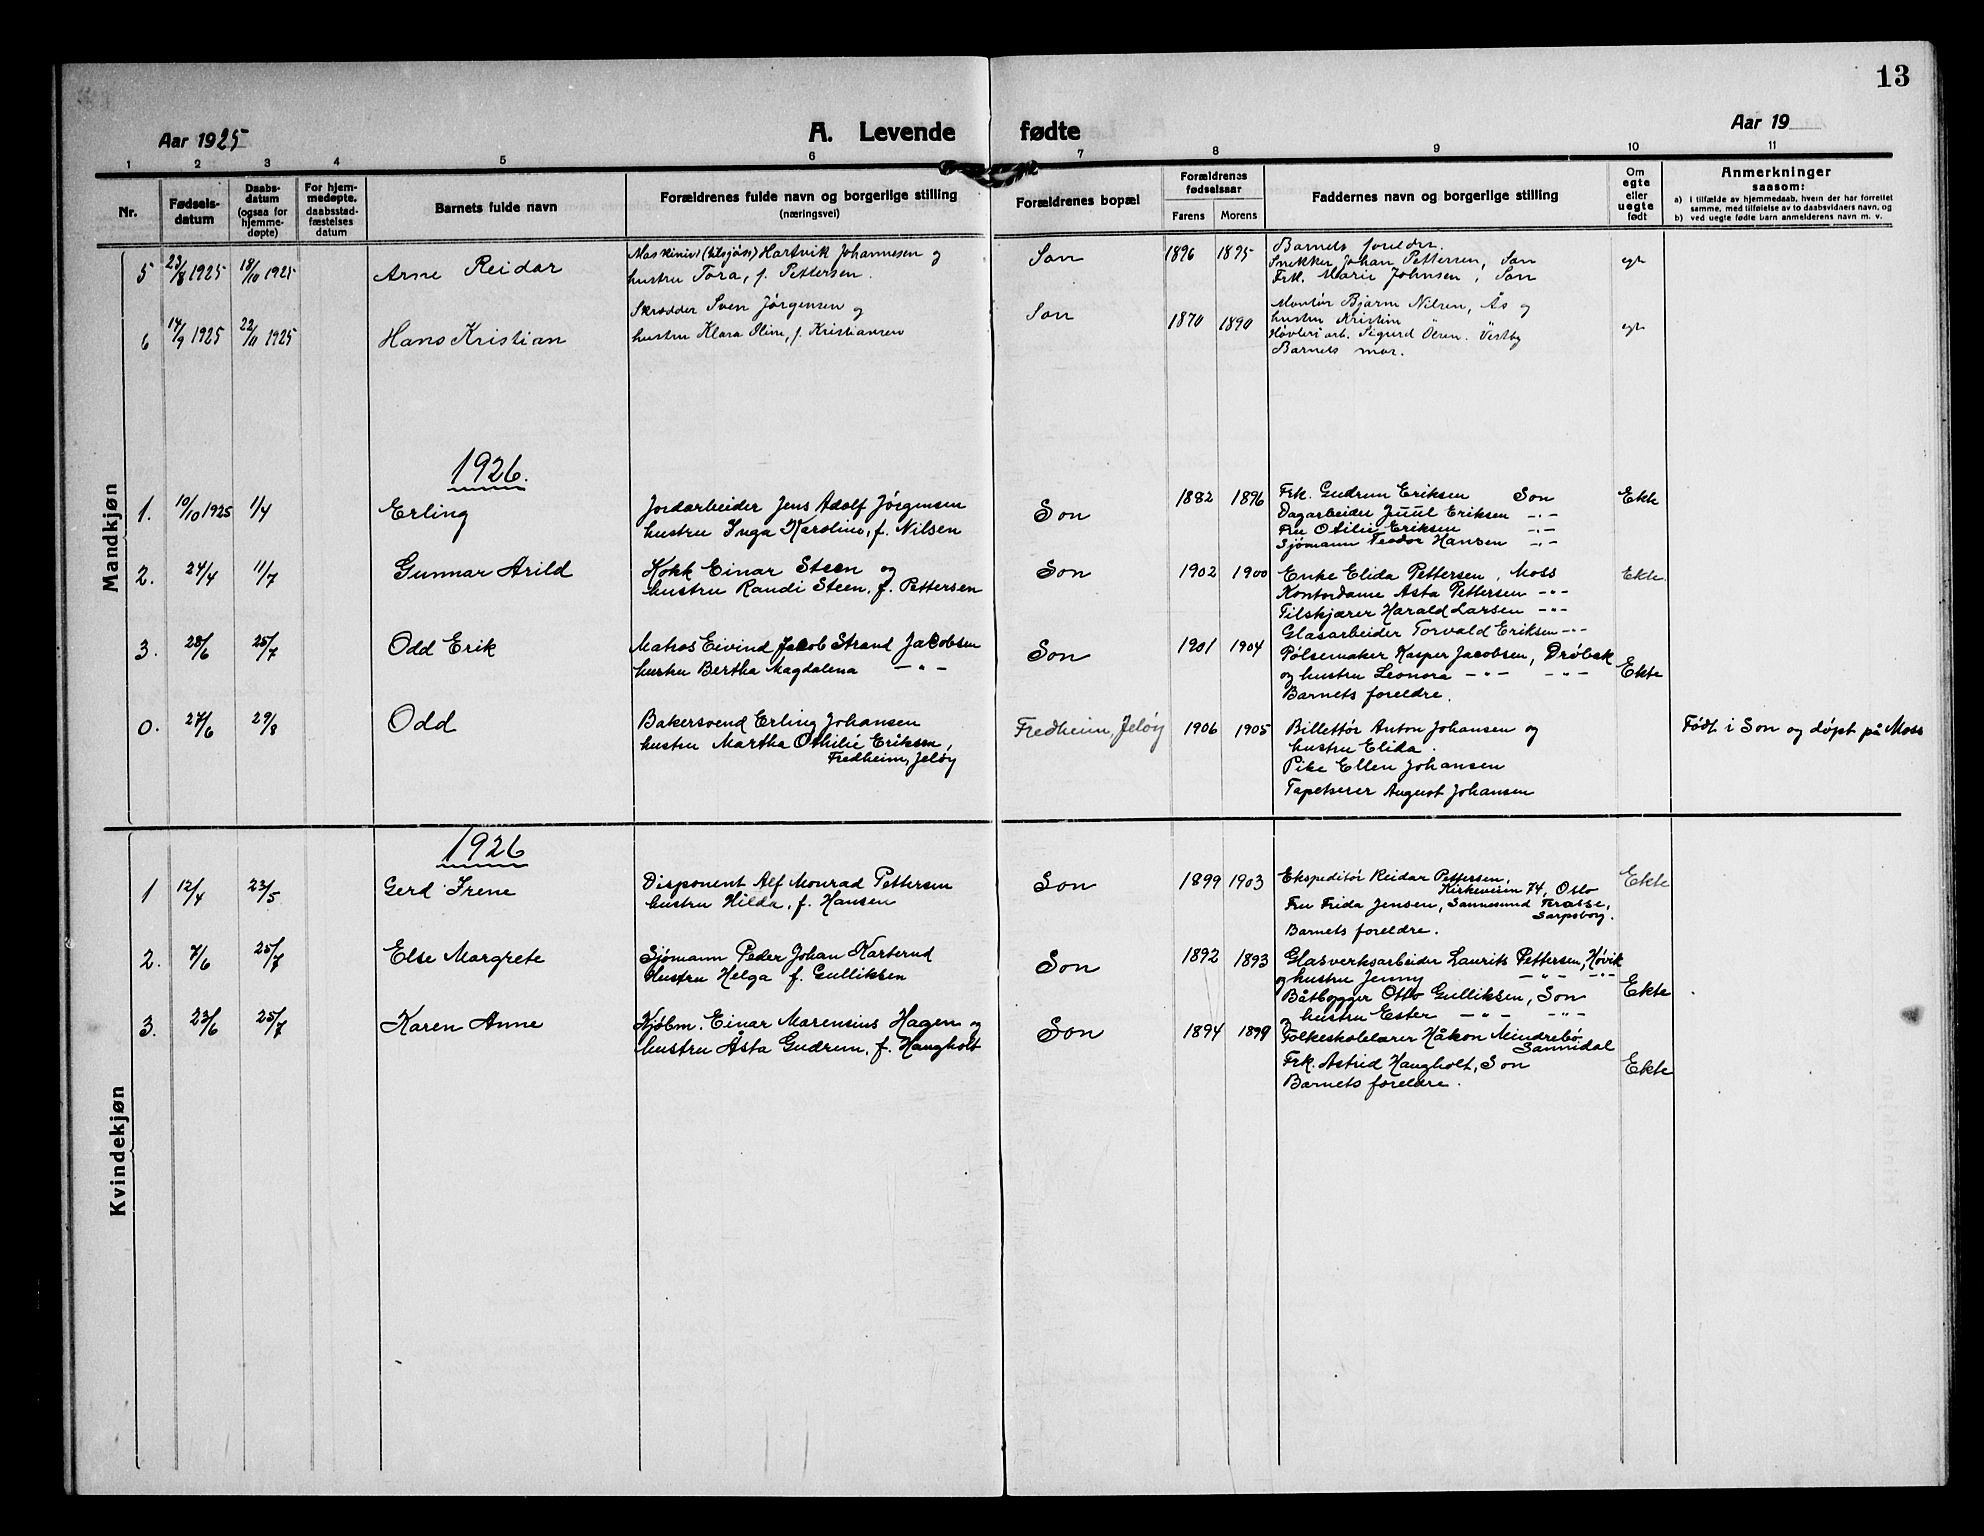 13
Aar 1925
A. Levende fødte
Aar 19
1 2 3 4 5 6 7 8 9 10 11
Nr.
Fødsels-
datum
Daabs-
datum
(ogsaa for
hjemme-
døpte)
For hjem-
medøpte.
daabsstad-
fæstelses
datum
Barnets fulde navn
Forældrenes fulde navn og borgerlige stilling
(næringsvei)
Forældrenes bopæl
Forældrenes
fødselsaar
Farens Morens
Faddernes navn og borgerlige stilling
Om
egte
eller
uegte
født
Anmerkninger
saasom:
a) i tilfælde av hjemmedaab, hvem der har forrettet
samme, med tilføielse av to daabsvidners navn, og
b) ved uegte fødte barn anmelderens navn m. v.
Mandkjøn
5 23/8 1925 18/10 1925 Arne Reidar
Hartvik Johannesen og
hustru Tora, f. Pettersen.
Son 1896 1895
Barnets foreldre.
Snekker Johan Pettersen, Son
Frk. Marie Johnsen, Son
egt
6 14/9 1925 22/11 1925 Hans Kristian
Skrædder Sven Jørgensen og
hustru Klara Oline, f. Kristiansen
Son 1870 1890
Montør Bjarne Nilsen, Ås og
hustru Kristine
Høvleriarb. Sigurd Olsen. Vestby
Barnets mor.
egt
1926.
1. 10/10 1925 1/4 Erling
Jordarbeider Jens Adolf Jørgensen
hustru Inga Karoline, f. Nilsen
Son 1882 1896
Frk. Gudrun Eriksen Son
Dagarbeider Juul Eriksen -„-
Fru Otilie Eriksen -„-
Sjømann Teodor Hansen -„-
Ekte
2. 24/4 11/7 Gunnar Arild
Kokk Einar Steen og
hustru Randi Steen, f. Pettersen
Son 1902 1900
Enke Elida Pettersen, Moss
Kontordame Asta Pettersen -„-
Tilskjærer Harald Larsen -„-
Glasarbeider Torvald Eriksen -„-
Ekte.
3. 28/6 25/7 Odd Erik
Matros Eivind Jacob Strand Jacobsen
hustru Bertha Magdalena -„-
Son 1901 1904
Pølsemaker Kasper Jacobsen, Drøbak
og hustru Leonora -„- -„-
Barnets foreldre.
Ekte
0. 27/6 29/8 Odd
Bakersvend Erling Johansen
hustru Martha Othilie Eriksen,
Fredheim, Jeløy
Fredheim, Jeløy 1906 1905
Billettør Anton Johansen og
hustru Elida.
Pike Ellen Johansen
Tapetserer August Johansen
Født i Son og døpt på Moss
Kvindekjøn
1926
1 12/4 23/5 Gerd Irene
Disponent Alf Monrad Pettersen
hustru Hilda, f. Hansen
Son 1899 1903
Ekspeditør Reidar Pettersen,
Kirkeveien 74, Oslo
Fru Frida Jensen, Sannesund Terasse,
Sarpsborg.
Barnets foreldre.
Ekte
2. 7/6 25/7 Else Margrete
Sjømann Peder Johan Karterud
Hustru Helga f. Gulliksen
Son 1892 1893
Glasverksarbeider Laurits Pettersen, Høvik
og hustru Jenny -„- -„-
Båtbygger Otto Gulliksen, Son
og hustru Ester -„- -„-
Ekte
3. 23/6 25/7 Karen Anne
Kjøbm. Einar Marensius Hagen og
hustru Åsta Gudrun, f. Haugholt
Son 1894 1899
Folkeskolelærer Håkon Meindrebø
Sannidal
Frk. Astrid Haugholt, Son
Barnets foreldre.
Ekte